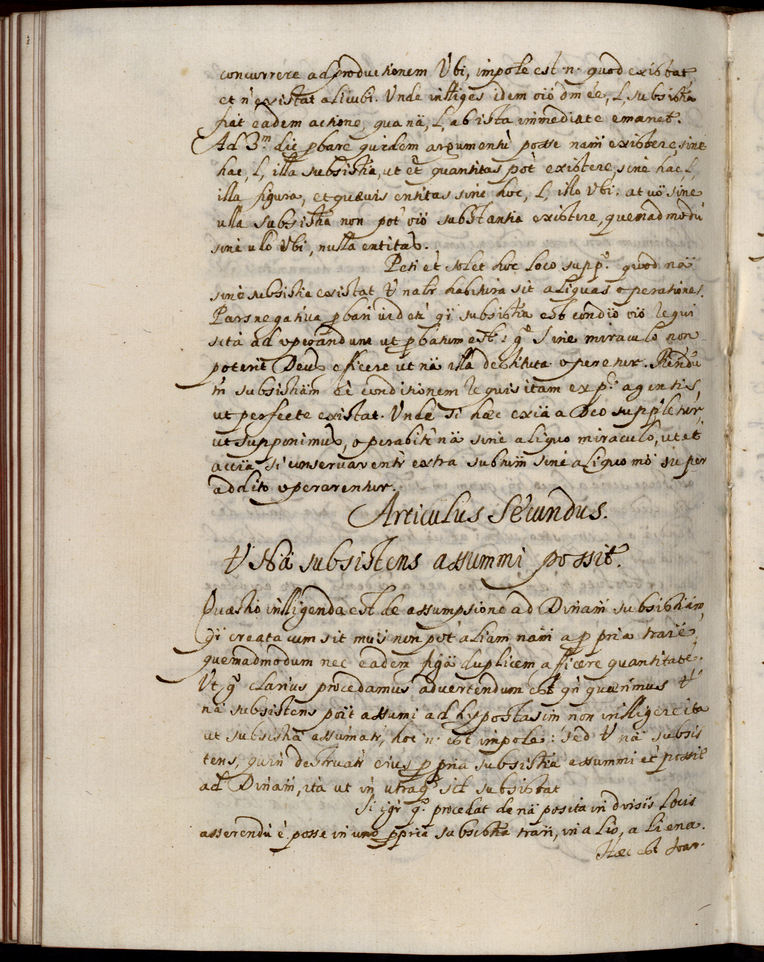 concurrere ad productionem Ubi, impole est n. quod existat
et n existat alicubi. Unde inlliges idem oiō dm ēe, L, subsistia
fiat eadem actione, qua nā, L, ab ista immediate emanet.
Ad 3.m dic pbare quidem argumentū posse nam existere, sine
hac, L, illa subsistia, ut et quantitas pōt existere, sine hac L,
illa figura, et quævis entitas sine hoc, L, illo Ubi: at vō sine
ulla subsistia non pot oiō substantia existere, quemadmodū
sine ulō Ubi, nulla entitas.
Peti et solet hoc loco supp.o quod nā
sine subsistia existat U nabr habitura sit aliquas operationes.
Pars negativa pbari videtr qī subsistia est condiō oiō requi
sita ad operandum ut pbatum est: g.o sine miraculo non
poterit Deus efficere ut nā illa destituta operetur. Rendū
m subsistiam ēe conditionem requisitam ex p.e agentis,
ut perfecte existat. Unde si hæc exīa a Deo suppletur,
ut supponimus, operabitr nā sine aliquo miraculo, ut et
accīa si conservarentr extra subtum sine aliquo mō super
addito operarentur.
Articulus Secundus.
U Nā subsistens assummi possit.
Quæstio inlligenda est de assumpsione ad Divinam subsistiam,
qī creata cum sit mus non pōt aliam nam a ppria trarē,
quemadmodum nec eadem figā duplicem afficere quantitatē.
Ut g.o clarius procedamus advertendum est qn quærimus U
nā subsistens poīt assumi ad hypostasim non inlligere ita
ut subsistia assumatr, hoc n. est impole: sed U nā subsis
tens, quin destruatr eius ppria subsistia assummi et possit
ad Divinam, ita ut in utraq. sil subsistat
Si igr q.o procedat de nā posita in dversis locis
asserendū ē posse in uno ppria subsistia trari, in alio, aliena.
Hæc est Joan-